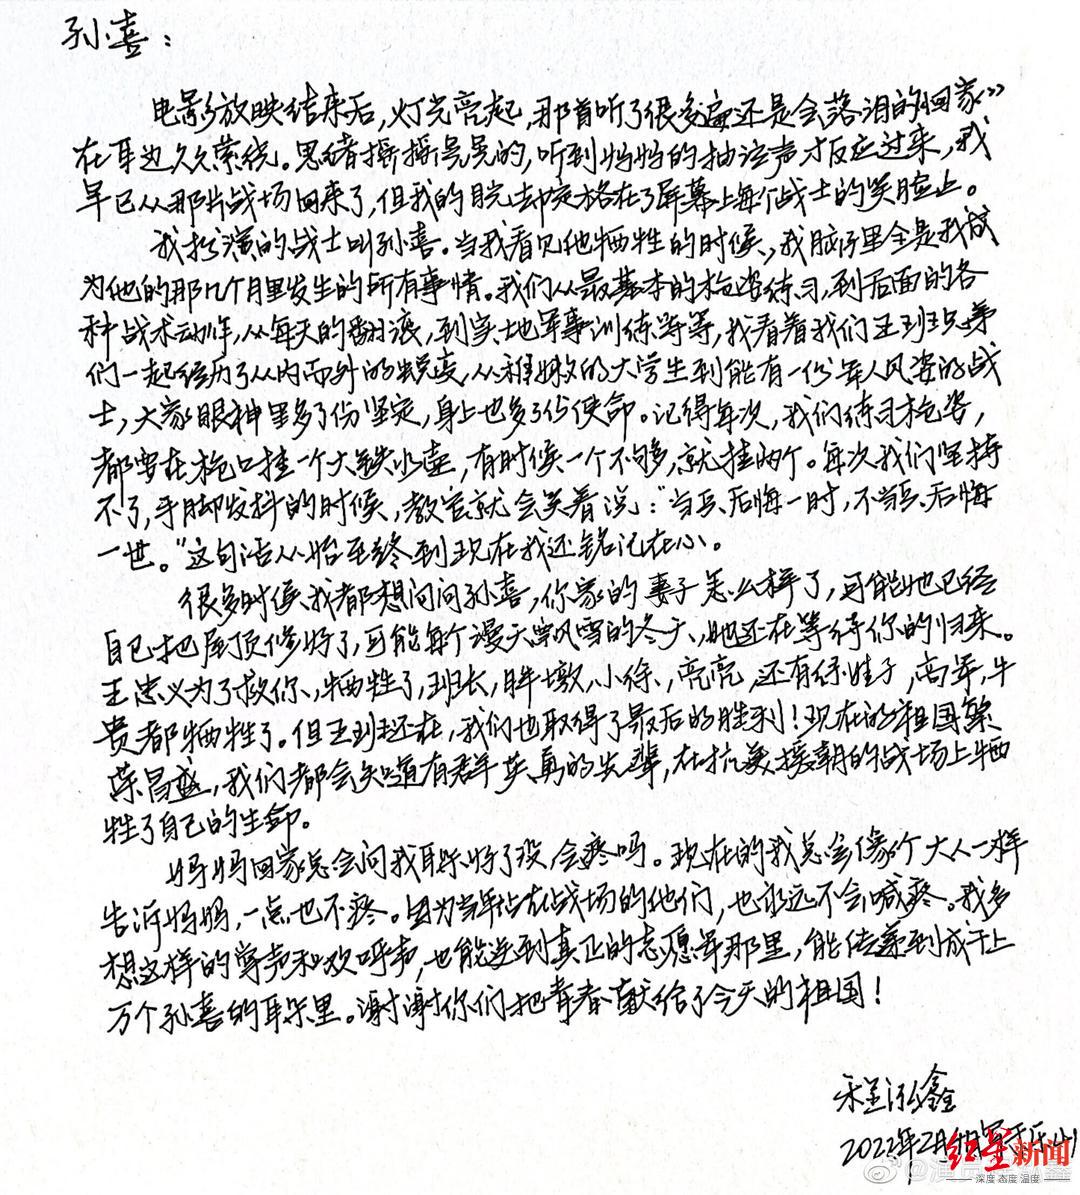 孙喜：
电影放映结束后，灯光亮起，那首听了很多遍还是会落泪的《回家》
在耳边久久萦绕。思绪摇摇晃晃的，听到妈妈的抽泣声才反应过来，我
早已从那片战场回来了，但我的眼却定格在了屏幕上每个战士的笑脸上。
我扮演的战士叫孙喜。当我看见他牺牲的时候，我脑海里全是我成
为他的那几个月里发生的所有事情。我们从最基本的枪姿练习，到后面的各
种战术动作，从每天的翻滚，到实地军事训练等等，我看着我们五班兄弟
们一起经历了从内而外的蜕变，从稚嫩的大学生到能有一份军人风姿的战
士，大家眼神里多了份坚定，身上也多了份使命。记得每次，我们练习枪姿，
都要在枪口挂一个大铁水壶，有时候一个不够，就挂两个。每次我们坚持
不了，手脚发抖的时候，教官就会笑着说：“当兵后悔一时，不当兵后悔
一世。”这句话从始至终到现在我还铭记在心。
很多时候我都想问问孙喜，你家的妻子怎么样了，可能她已经
自己把屋顶修好了，可能每个漫天风雪的冬天，她还在等待你的归来。
王忠义为了救你，牺牲了，班长，胖墩，小徐，亮亮，还有绿娃子，高军，牛
贵都牺牲了。但五班还在，我们也取得了最后的胜利！现在的祖国繁
荣昌盛，我们都会知道有群英勇的先辈，在抗美援朝的战场上牺
牲了自己的生命。
妈妈回家总会问我耳朵好了没，会疼吗。现在的我总会像个大人一样
告诉妈妈，一点也不疼。因为当年站在战场的他们，也永远不会喊疼。我多
想这样的掌声和欢呼声，也能送到真正的志愿军那里，能传递到成千上
万个孙喜的耳朵里。谢谢你们把青春献给了今天的祖国！
程泓鑫
2022年2月写于乐山
红星新闻
深度 态度 温度
@演员程泓鑫